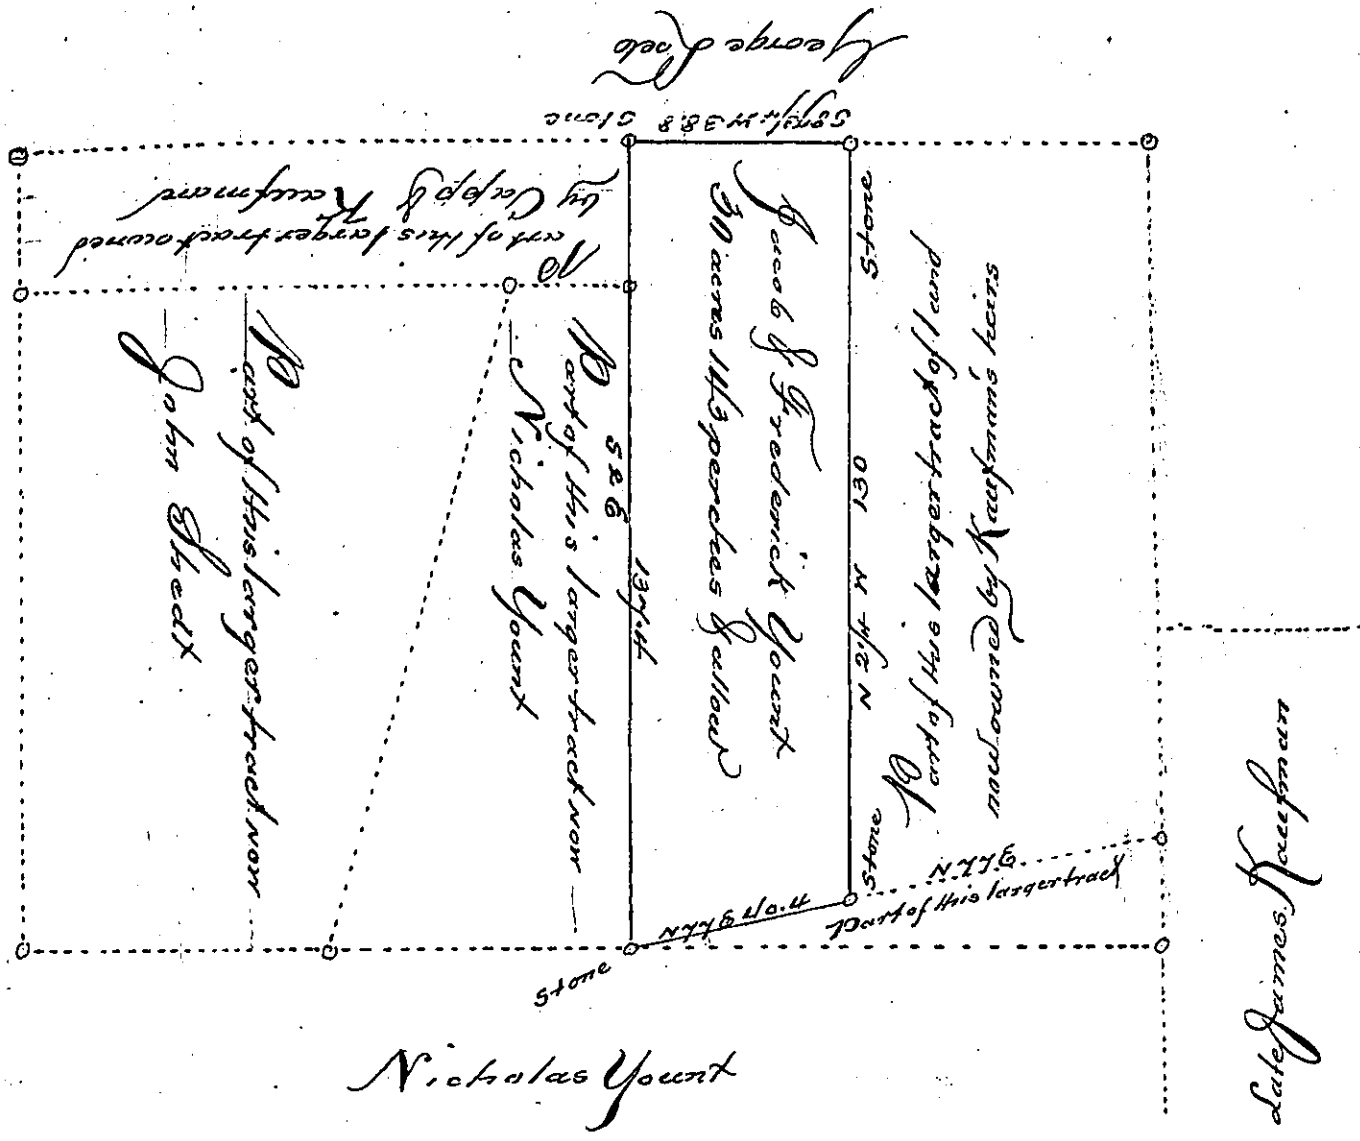 George
S 87 1/2 W 38.8
Stone
Part of this larger tract owned
by Capp & Kaufman
Part of this larger tract now
John Shedt
Part of this larger tract now
Nicholas Yount
S 2 E 137.4
Jacob & Frederick Yount
30 acres 143 perches & allow
N 2 1/4 W 130
Stone
Stone
Part of this larger tract of land
now owned by Kaufman's heirs
N 77 E
Part of this larger tract
N 77 E 40.4
Stone
Nicholas Yount
Late James Kaufman